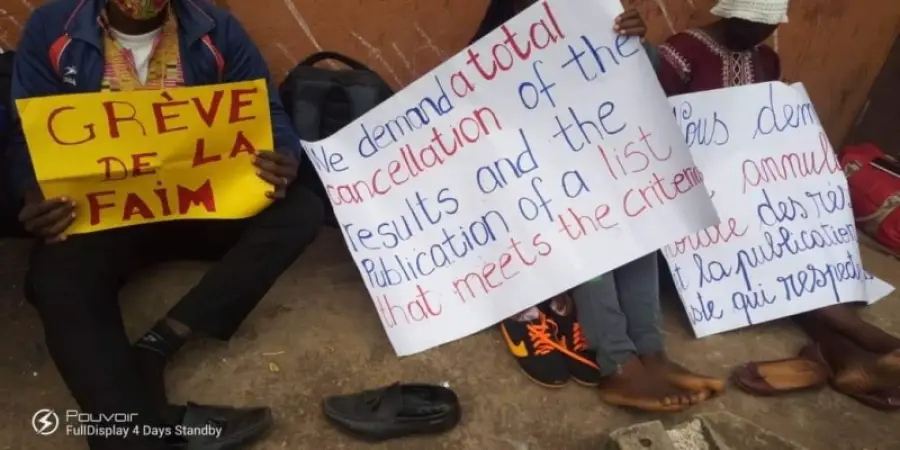 GRÈVE
DE LA
FAIM
We demand a total
cancellation of the
results and the
Publication of a list
that meets the criteria
Nous dem
annula
des rés
et la publication
qui respect
Pouvoir
FullDisplay 4 Days Standby